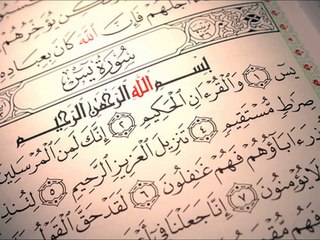 يُؤَخِّرُهُمْ
فَإِنَّ ٱللَّهَ كَانَ بِعِبَادِهِ
سُورَةُ يسٓ
بِسْمِ ٱللَّهِ ٱلرَّحْمَٰنِ ٱلرَّحِيمِ
يسٓ ١ وَٱلْقُرْءَانِ ٱلْحَكِيمِ ٢ إِنَّكَ لَمِنَ ٱلْمُرْسَلِينَ
صِرَٰطٍ مُّسْتَقِيمٍ ٤ تَنزِيلَ ٱلْعَزِيزِ ٱلرَّحِيمِ ٥ لِتُنذِ
ءَابَآؤُهُمْ فَهُمْ غَٰفِلُونَ ٦ لَقَدْ حَقَّ ٱلْقَوْلُ
لَا يُؤْمِنُونَ ٧ إِنَّا جَعَلْنَا فِىٓ